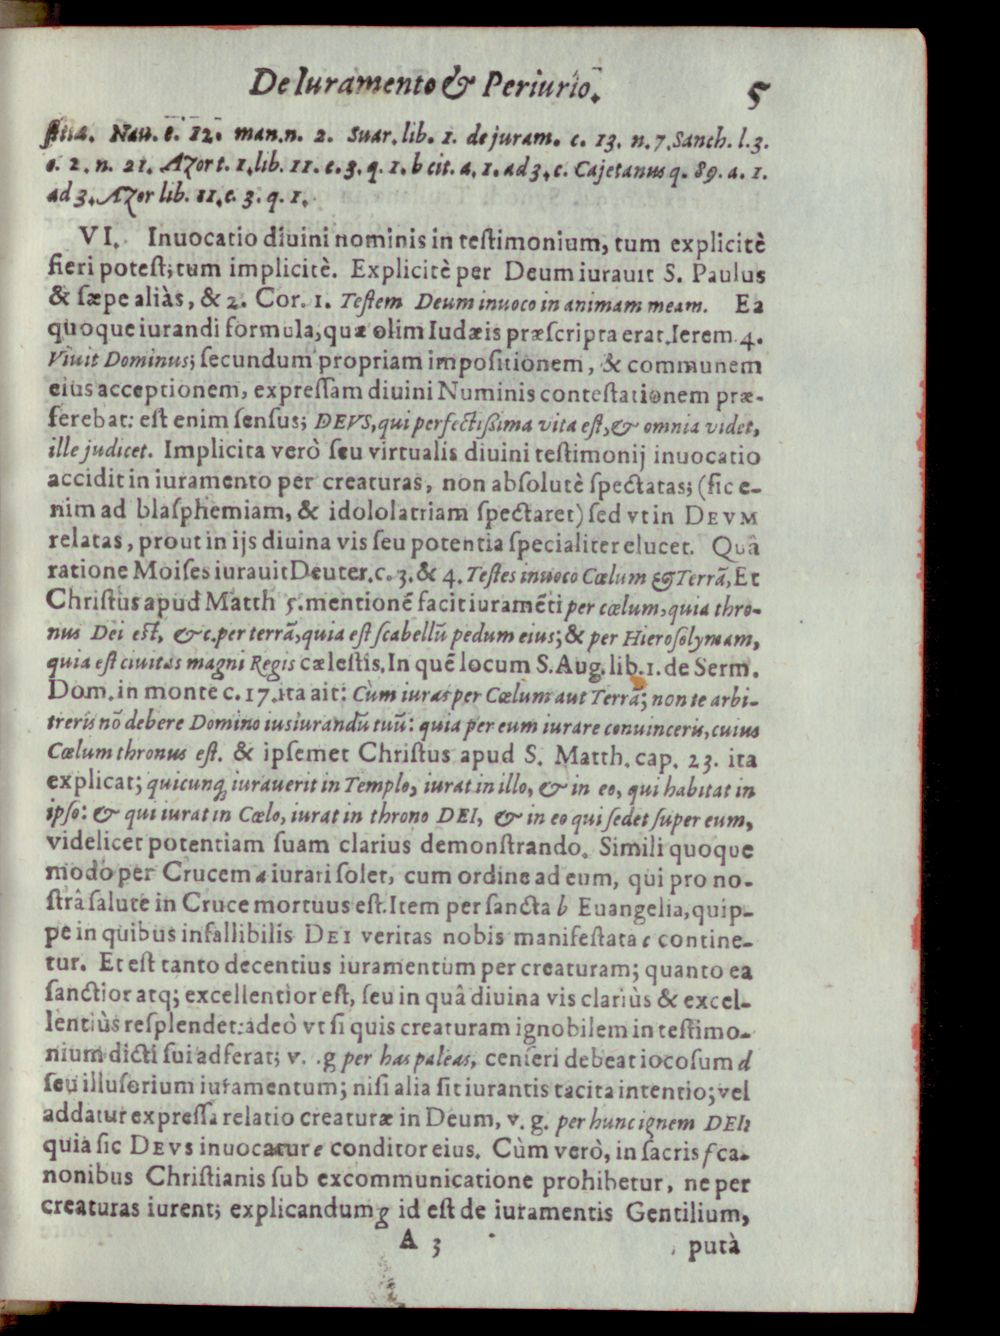 De Iuramento & Periurio. 5
stia. Nau. c. 12. man. n. 2. Suar. lib. 1. de juram. c. 13. n. 7. Sanch. l. 3.
c. 2. n. 21. Azor t. 1. lib. 11. c. 3. q. 1. b cit. a. 1. ad 3. c. Cajetanus q. 89. a. 1.
ad 3. Azor lib. 11. c. 3. q. 1.
VI. Inuocatio diuini nominis in testimonium, tum explicitè
fieri potest; tum implicitè. Explicitè per Deum iurauit S. Paulus
& sæpe aliàs, & 2. Cor. 1. Testem Deum inuoco in animam meam. Ea
quoque iurandi formula, quæ olim Iudæis præscripta erat Ierem. 4.
Viuit Dominus; secundum propriam impositionem, & communem
eius acceptionem, expressam diuini Numinis contestationem præ-
ferebat: est enim sensus; DEVS, qui perfectissima vita est, & omnia videt,
ille judicet. Implicita verò seu virtualis diuini testimonij inuocatio
accidit in iuramento per creaturas, non absolutè spectatas; (sic e-
nim ad blasphemiam, & idololatriam spectaret) sed vt in DEVM
relatas, prout in ijs diuina vis seu potentia specialiter elucet. Quâ
ratione Moises iurauit Deuter. c. 3. & 4. Testes inuoco Cœlum & Terrã, Et
Christus apud Matth 5. mentionẽ facit iuramẽti per cœlum, quia thro-
nus Dei est, &c. per terrã, quia est scabellũ pedum eius; & per Hierosolymam,
quia est ciuitas magni Regis cælestis. In quẽ locum S. Aug. lib. 1. de Serm.
Dom. in monte c. 17. ita ait: Cùm iuras per Cœlum aut Terrã; non te arbi-
treris nõ debere Domino iusiurandũ tuũ: quia per eum iurare conuinceris, cuius
Cœlum thronus est. & ipsemet Christus apud S. Matth. cap. 23. ita
explicat; quicunq; iurauerit in Templo, iurat in illo, & in eo, qui habitat in
ipso: & qui iurat in Cœlo, iurat in throno DEI, & in eo qui sedet super eum,
videlicet potentiam suam clarius demonstrando. Simili quoque
modo per Crucem a iurari solet, cum ordine ad eum, qui pro no-
strâ salute in Cruce mortuus est. Item per sancta b Euangelia, quip-
pe in quibus infallibilis DEI veritas nobis manifestata c contine-
tur. Et est tanto decentius iuramentum per creaturam; quanto ea
sanctior atq; excellentior est, seu in quâ diuina vis clariùs & excel-
lentiùs resplendet: adeò vt si quis creaturam ignobilem in testimo-
nium dicti sui adferat; v. g per has paleas, censeri debeat iocosum d
seu illusorium iuramentum; nisi alia sit iurantis tacita intentio; vel
addatur expressa relatio creaturæ in Deum, v. g. per hunc ignem DEI;
quia sic DEVS inuocatur e conditor eius. Cùm verò, in sacris f ca-
nonibus Christianis sub excommunicatione prohibetur, ne per
creaturas iurent; explicandum g id est de iuramentis Gentilium,
A 3 putà